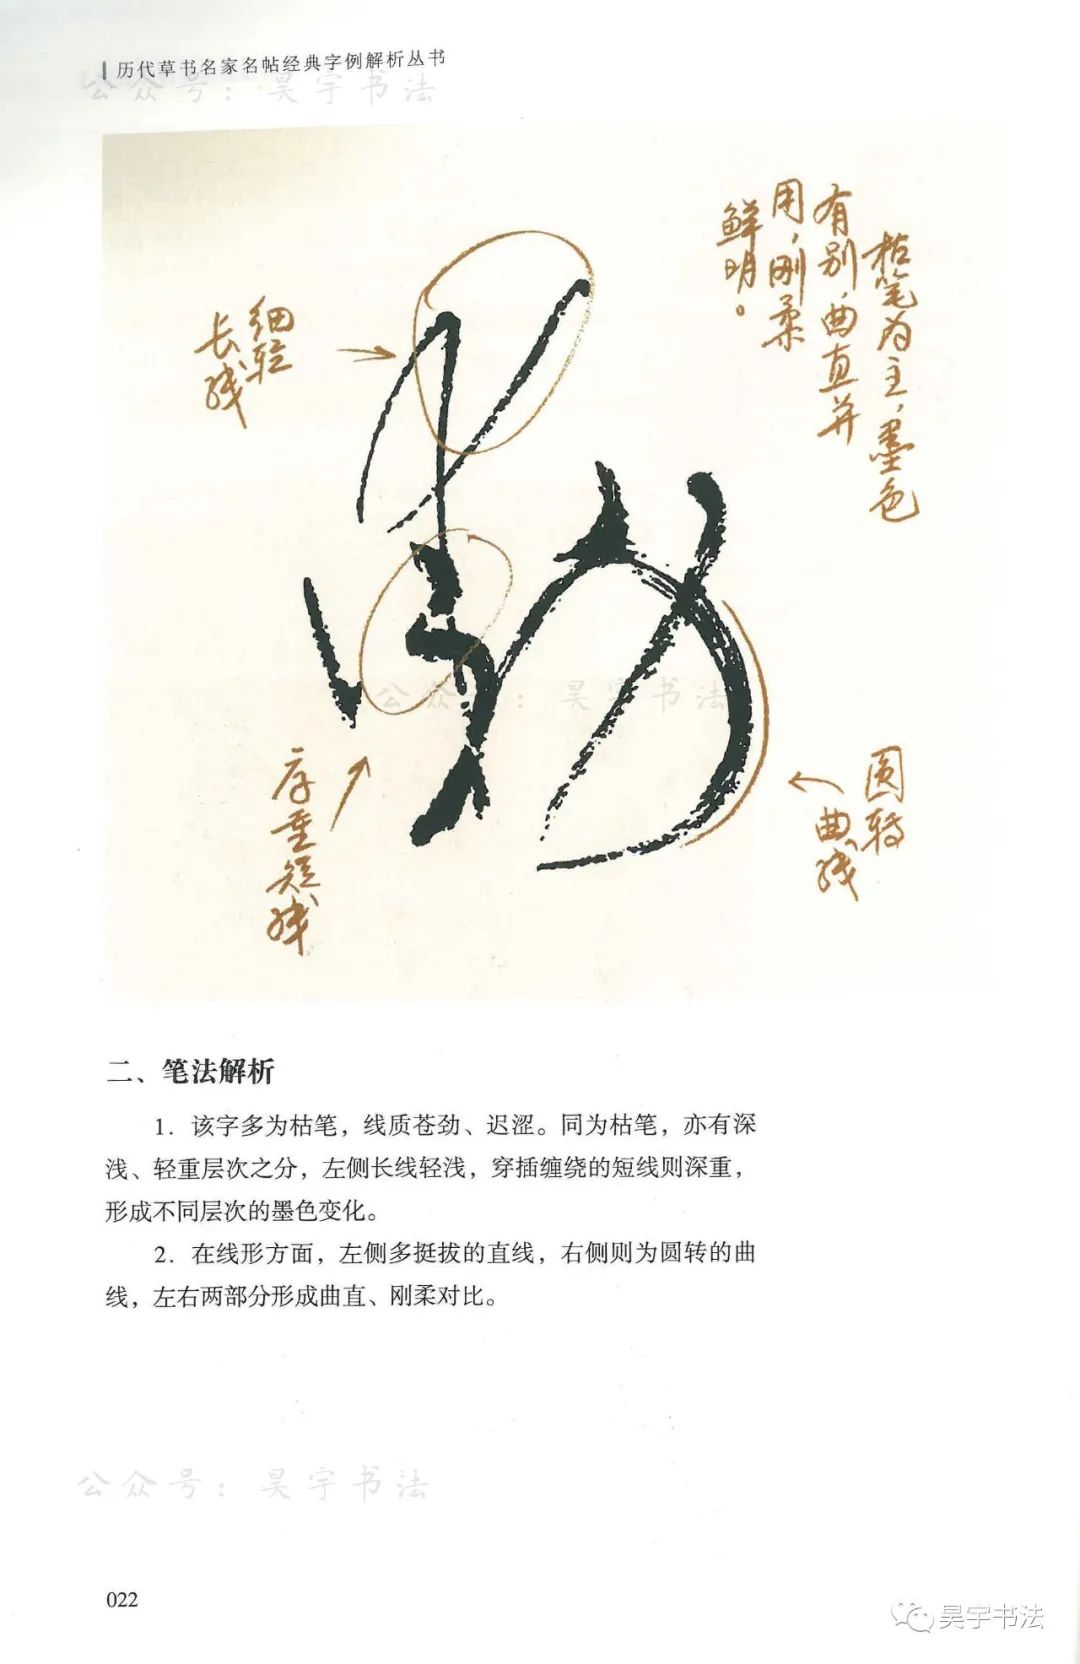 历代草书名家名帖经典字例解析丛书
公众号：昊宇书法
枯笔为主，墨色
有别，曲直并
用，刚柔
鲜明。
细轻
长线
圆转
曲线
厚重短线
公众号：昊宇书法
二、笔法解析
1．该字多为枯笔，线质苍劲、迟涩。同为枯笔，亦有深
浅、轻重层次之分，左侧长线轻浅，穿插缠绕的短线则深重，
形成不同层次的墨色变化。
2．在线形方面，左侧多挺拔的直线，右侧则为圆转的曲
线，左右两部分形成曲直、刚柔对比。
公众号：昊宇书法
022
昊宇书法